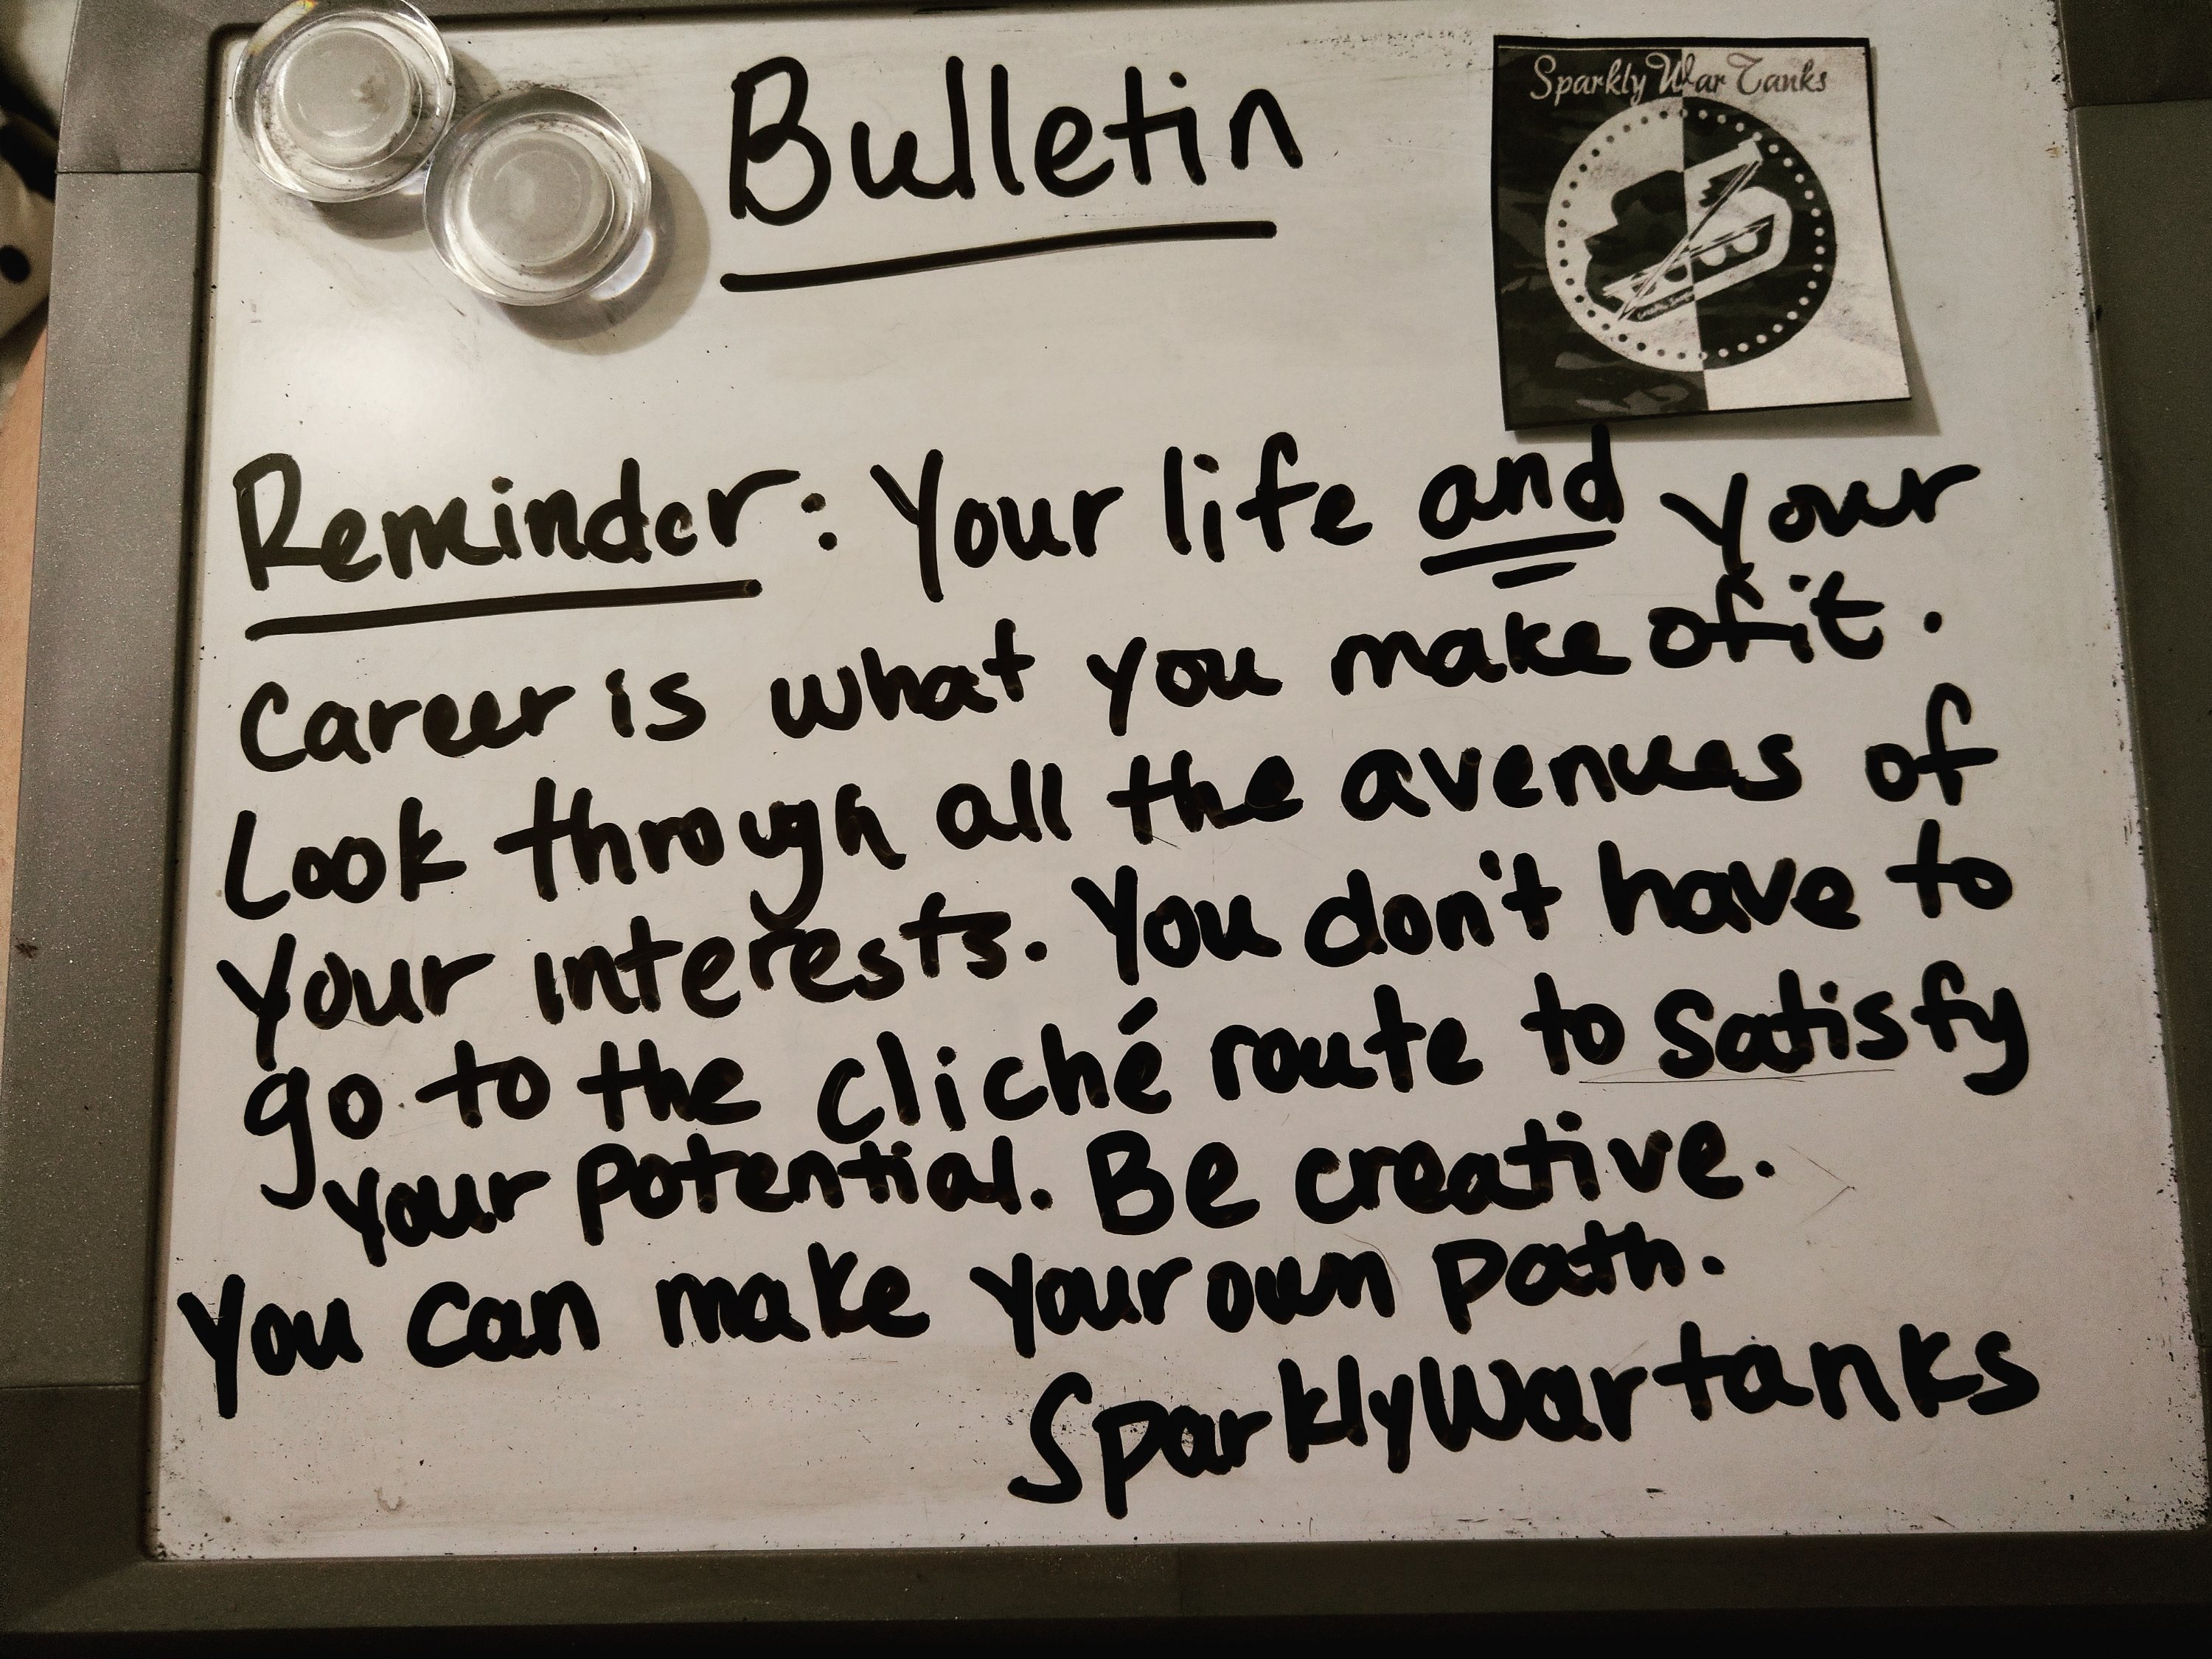 Bulletin
Sparkly War Tanks
Reminder: Your life and your
Career is what you make of it.
Look through all the avenues of
your interests. You don't have to
go to the cliché route to satisfy
your potential. Be creative.
You can make your own path.
SparklyWartanks